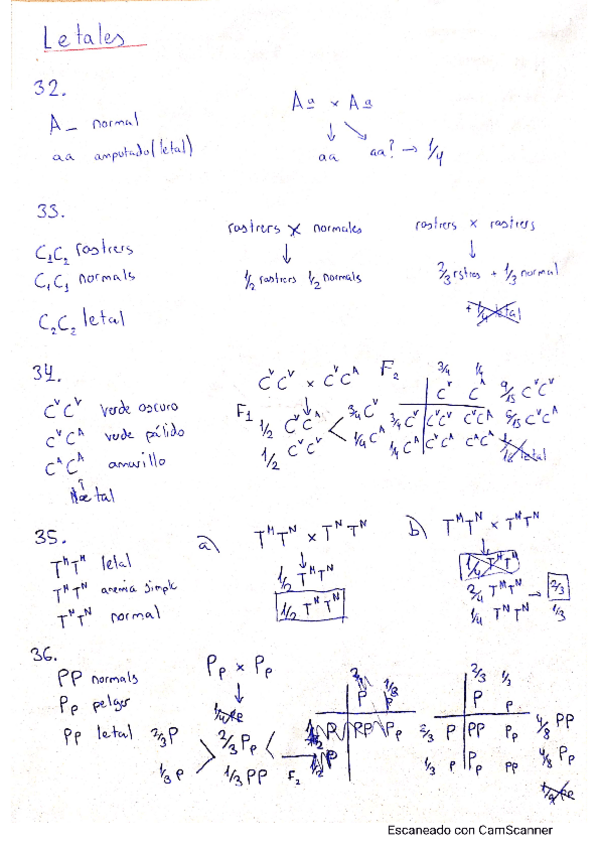 Letales
32.
A_ normal
aa amputado (letal)
Aa × Aa
aa aa? → 1/4
33.
C₁C₂ rastrers
C₁C₁ normals
C₂C₂ letal
rastrers × normales
1/2 rastrers 1/2 normals
rastrers × rastrers
2/3 rstres + 1/3 normal
+ 1/4 letal
34.
CᵛCᵛ verde oscuro
CᵛCᴬ verde pálido
CᴬCᴬ amarillo
letal
CᵛCᵛ × CᵛCᴬ
F1 1/2 CᵛCᴬ
1/2 CᵛCᵛ
3/4 Cᵛ
1/4 Cᴬ
F2
3/4 1/4
Cᵛ Cᴬ
3/4 Cᵛ CᵛCᵛ CᵛCᴬ
1/4 Cᴬ CᵛCᴬ CᴬCᴬ
9/15 CᵛCᵛ
6/15 CᵛCᴬ
letal
35.
TᴹTᴹ letal
TᴹTᴺ anemia simple
TᴺTᴺ normal
a) TᴹTᴺ × TᴺTᴺ
1/2 TᴹTᴺ
1/2 TᴺTᴺ
b) TᴹTᴺ × TᴹTᴺ
1/4 TᴹTᴹ
2/4 TᴹTᴺ → 2/3
1/4 TᴺTᴺ 1/3
36.
PP normals
Pp pelger
pp letal
Pp × Pp
2/3 Pp
1/3 PP
2/3 P
1/3 p
F2
2/3 1/3
P p
2/3 P PP Pp
1/3 p Pp pp
4/8 PP
4/8 Pp
Escaneado con CamScanner